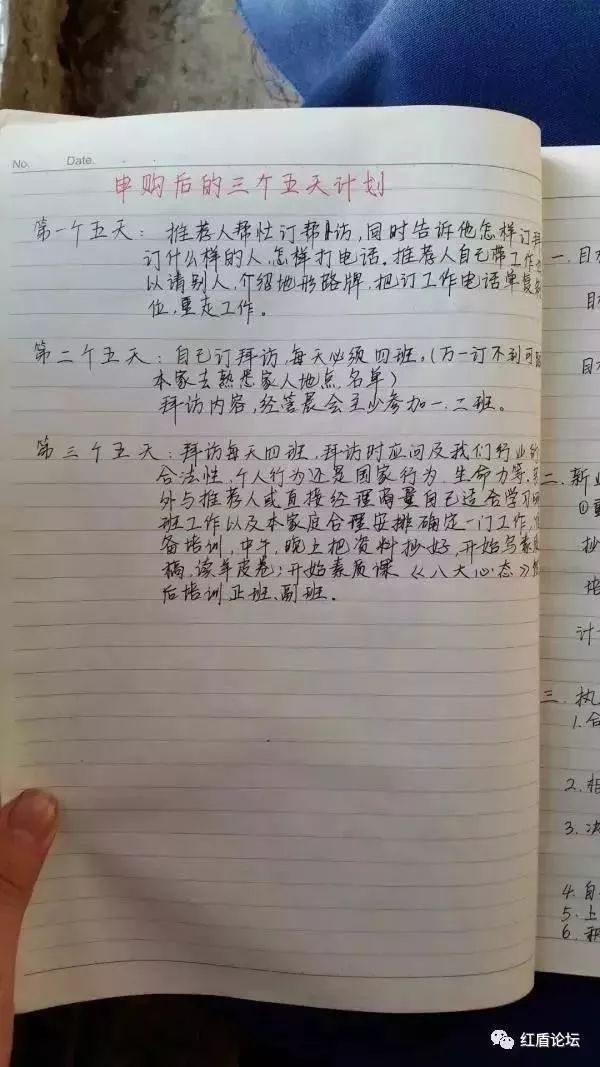 No. Date.
申购后的三个五天计划
第一个五天：推荐人帮忙订帮访，同时告诉他怎样订拜
订什么样的人，怎样打电话。推荐人自己带工作
以请别人，介绍地形路牌，把订工作电话单复
位，重走工作。
第二个五天：自己订拜访，每天必须四班。（万一订不到可
本家去熟悉家人地点，名单）
拜访内容，经营晨会至少参加一、二班。
第三个五天：拜访每天四班，拜访时应问及我们行业的
合法性，个人行为还是国家行为，生命力等，
外与推荐人或直接经理商量自己适合学习
班工作以及本家庭合理安排确定一门工作，
备培训，中午，晚上把资料抄好，开始写素
稿，读羊皮卷；开始素质课《八大心态》
后培训正班、副班。
一.目
目
目
二.新业
①
抄
培
计
三.执
1.合
2.相
3.决
4.自
5.上
6.
红盾论坛